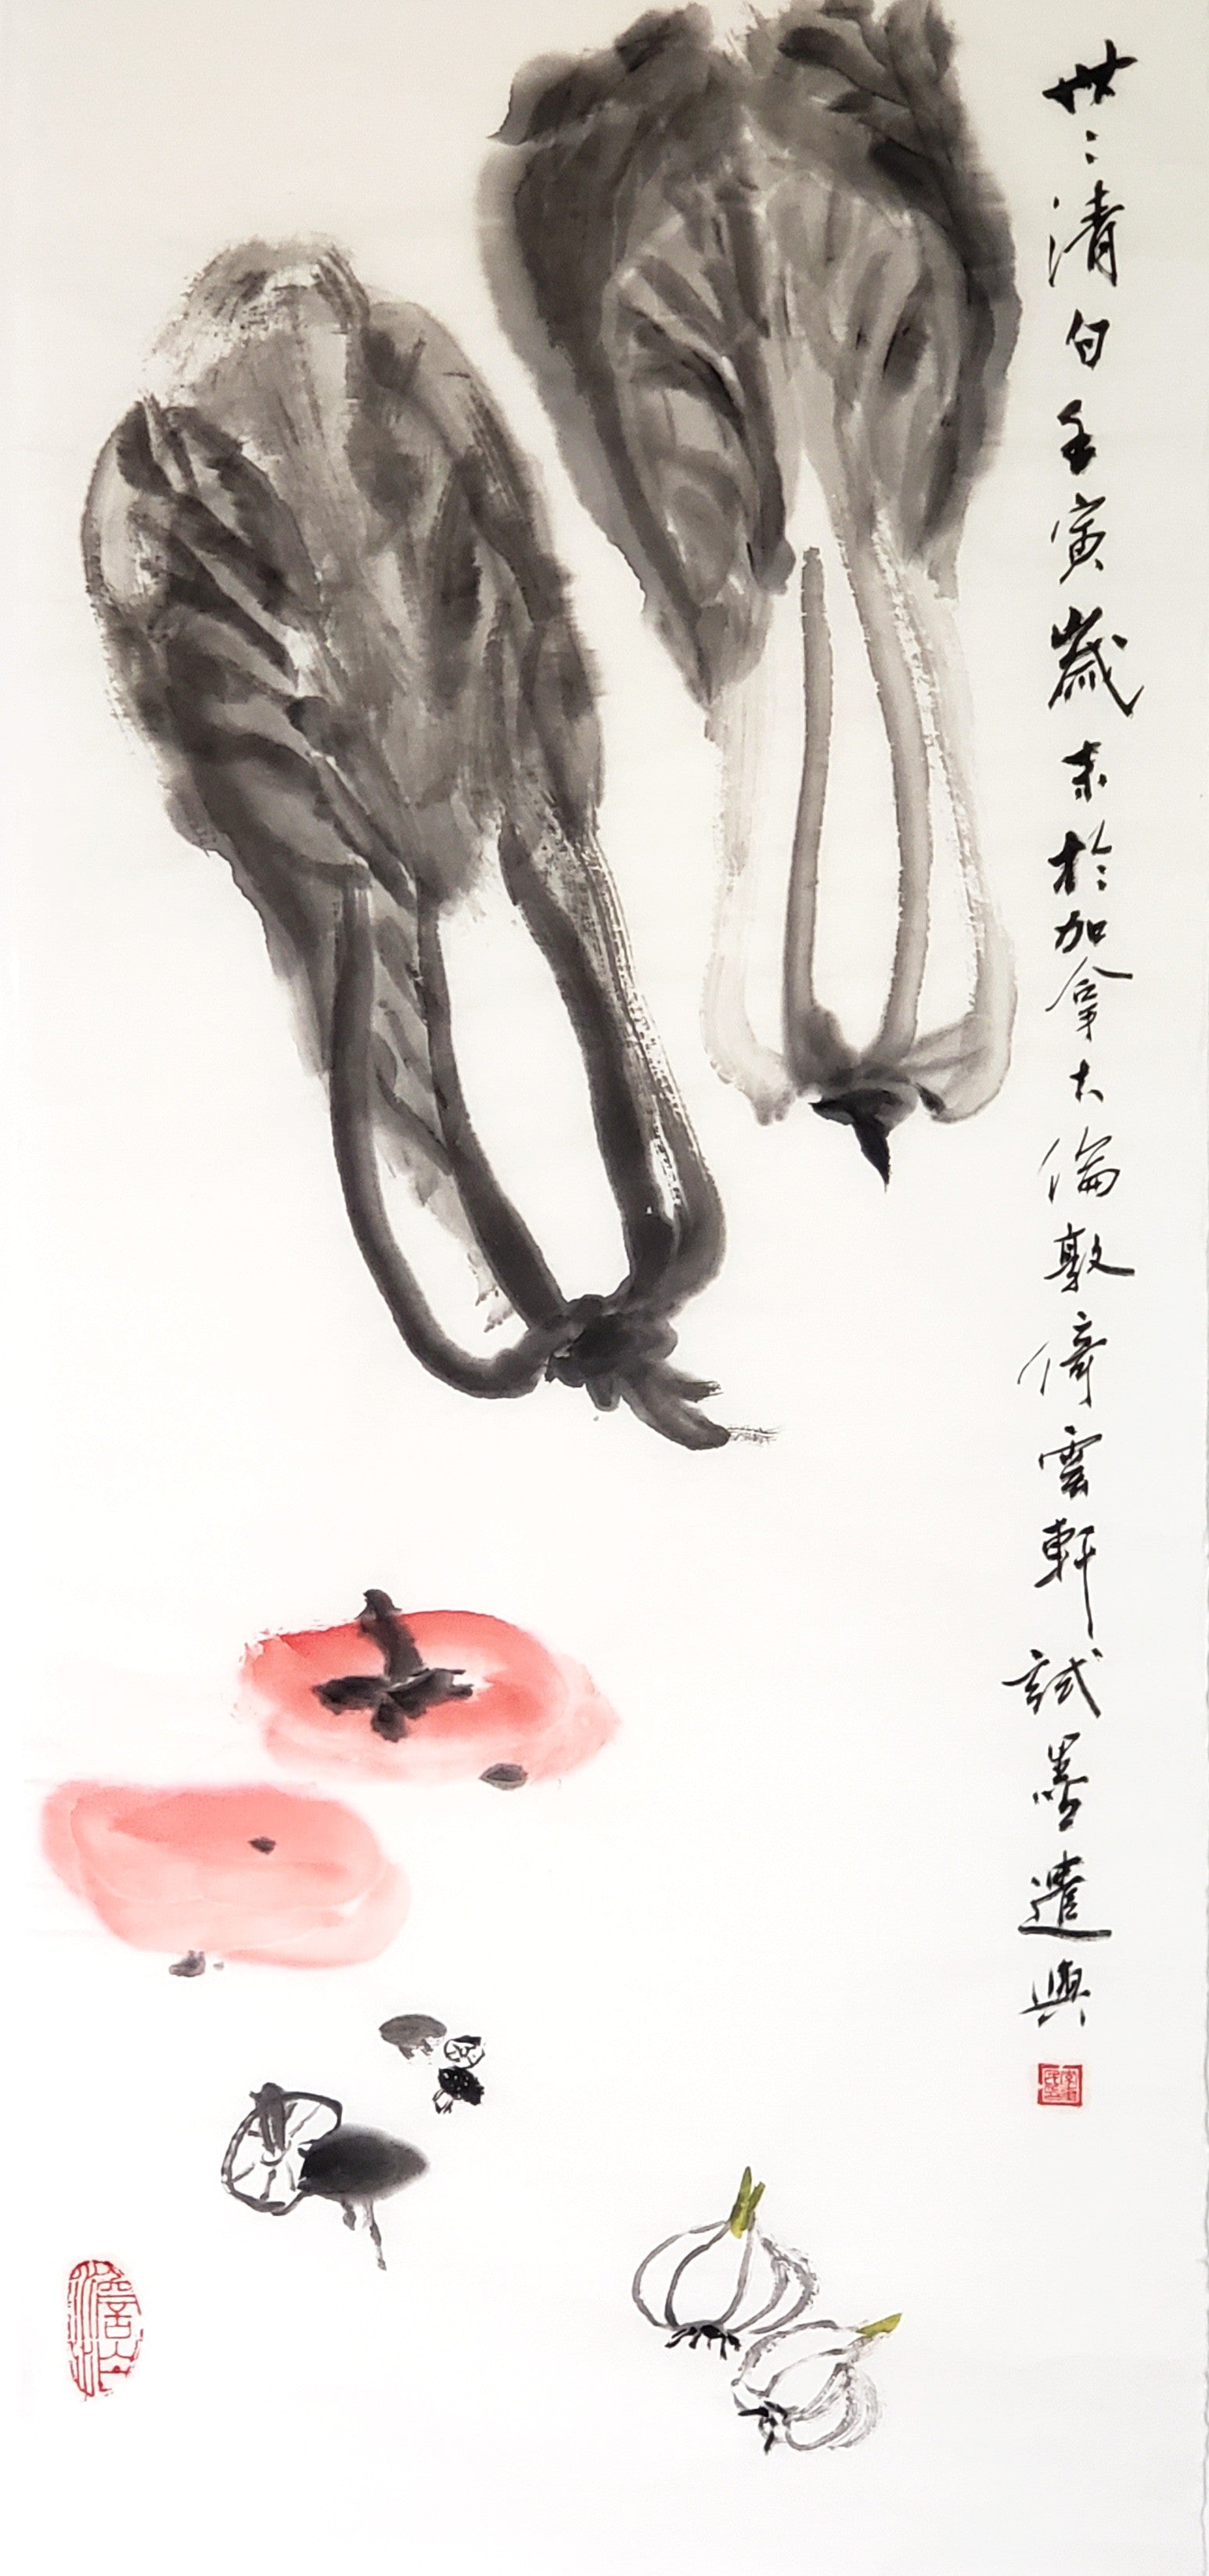 世〻清白壬寅歲末於加拿大倫敦倚雲軒試墨遣興